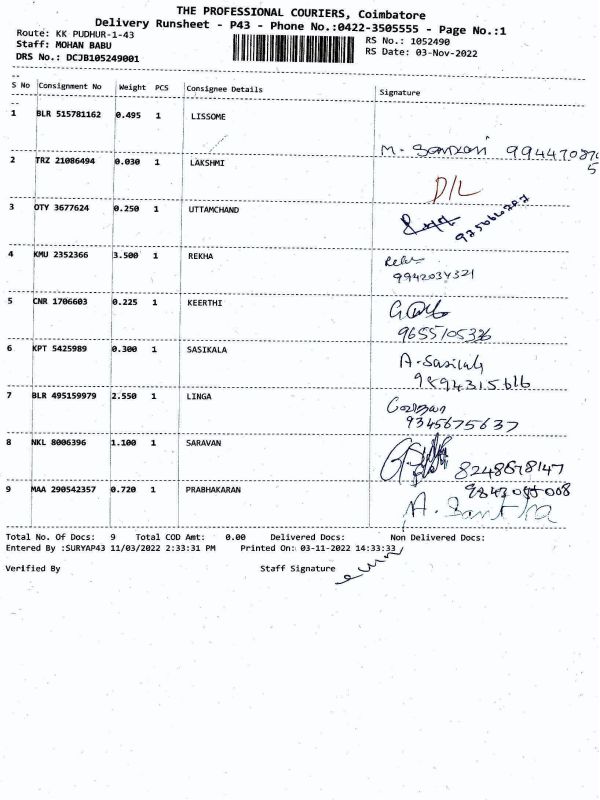 THE PROFESSIONAL COURIERS, Coimbatore
Delivery Runsheet - P43 - Phone No.:0422-3505555 - Page No.:1
Route: KK PUDHUR-1-43
RS No.: 1052490
Staff: MOHAN BABU
RS Date: 03-Nov-2022
DRS No.: DCJB105249001
S No Consignment No Weight PCS Consignee Details Signature
1 BLR 515781162 0.495 1 LISSOME
M.
2 TRZ 21086494 0.030 1 LAKSHMI
D/L
3 OTY 3677624 0.250 1 UTTAMCHAND
4 KMU 2352366 3.500 1 REKHA
9942034321
5 CNR 1706603 0.225 1 KEERTHI
9655105336
6 KPT 5425989 0.300 1 SASIKALA
A. Sasikala
9894315616
7 BLR 495159979 2.550 1 LINGA
9345675637
8 NKL 8006396 1.100 1 SARAVAN
8248678147
9 MAA 290542357 0.720 1 PRABHAKARAN
A. Santha
Total No. Of Docs: 9 Total COD Amt: 0.00 Delivered Docs: Non Delivered Docs:
Entered By :SURYAP43 11/03/2022 2:33:31 PM Printed On: 03-11-2022 14:33:33
Verified By Staff Signature